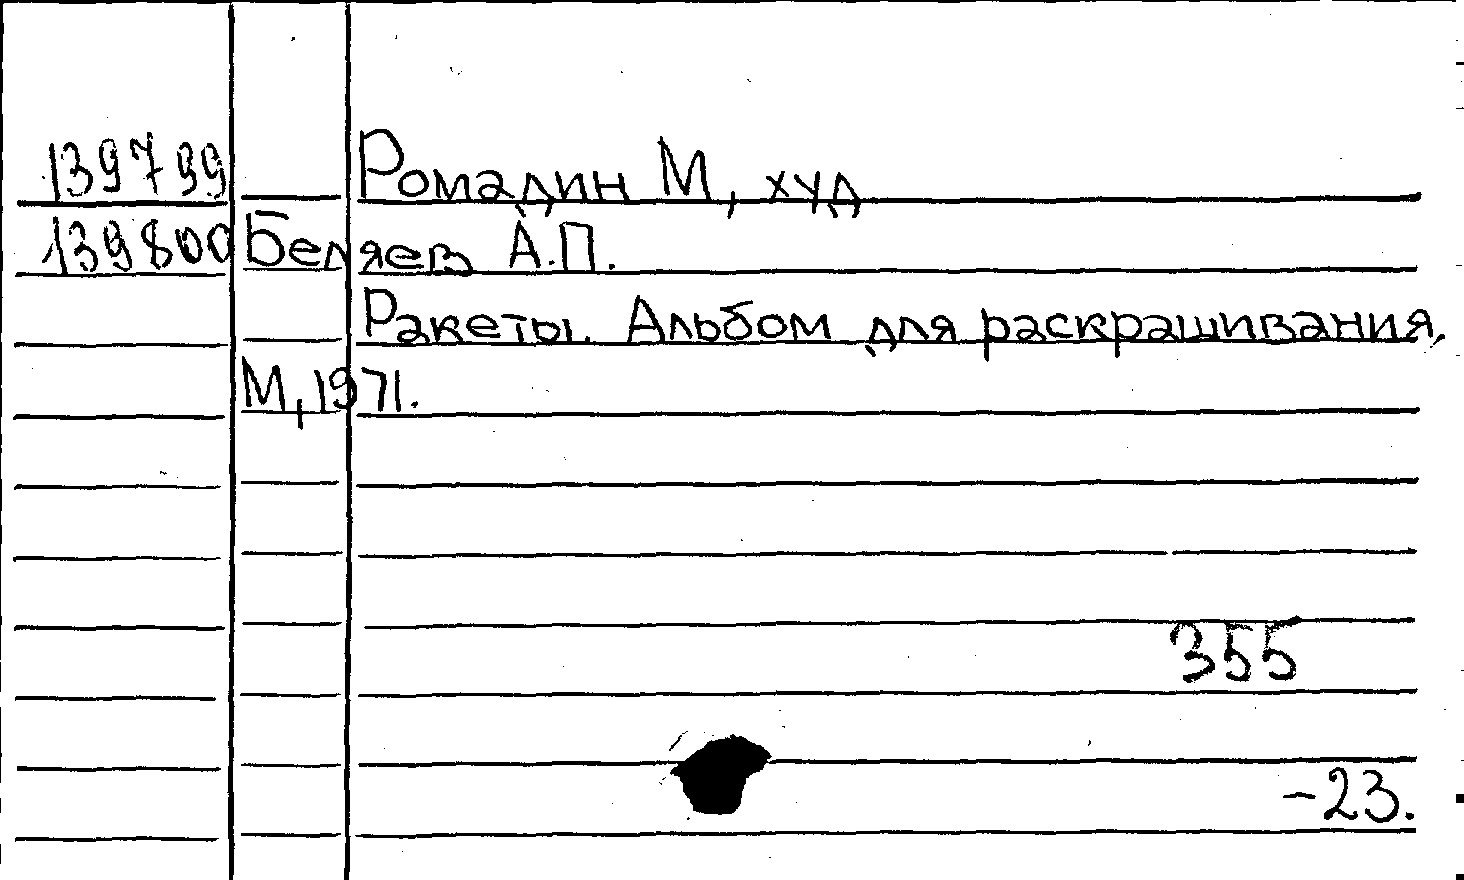 139799 Ромадин М, худ
139800 Беляев А.П.
Ракеты. Альбом для раскрашивания,
М, 1971.
355
-23.